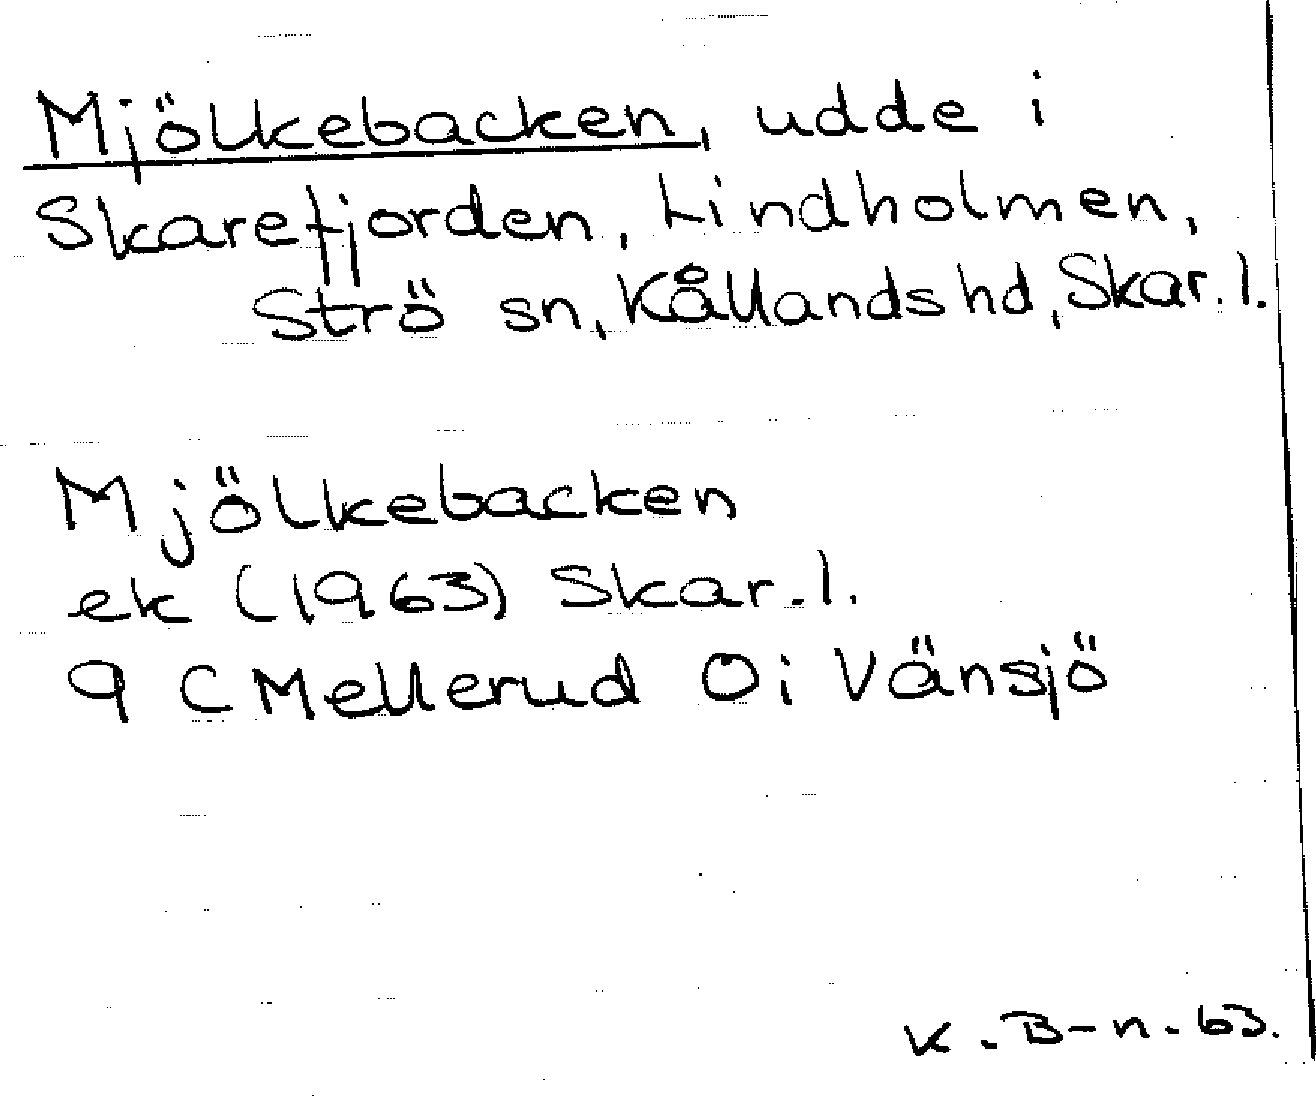 Mjölkebacken, udde i
Skarefjorden, Lindholmen,
Strö sn, Kållands hd, Skar. l.
Mjölkebacken
ek (1963) Skar. l.
9 C Mellerud Oi Vänsjö
K. B-n. 63.